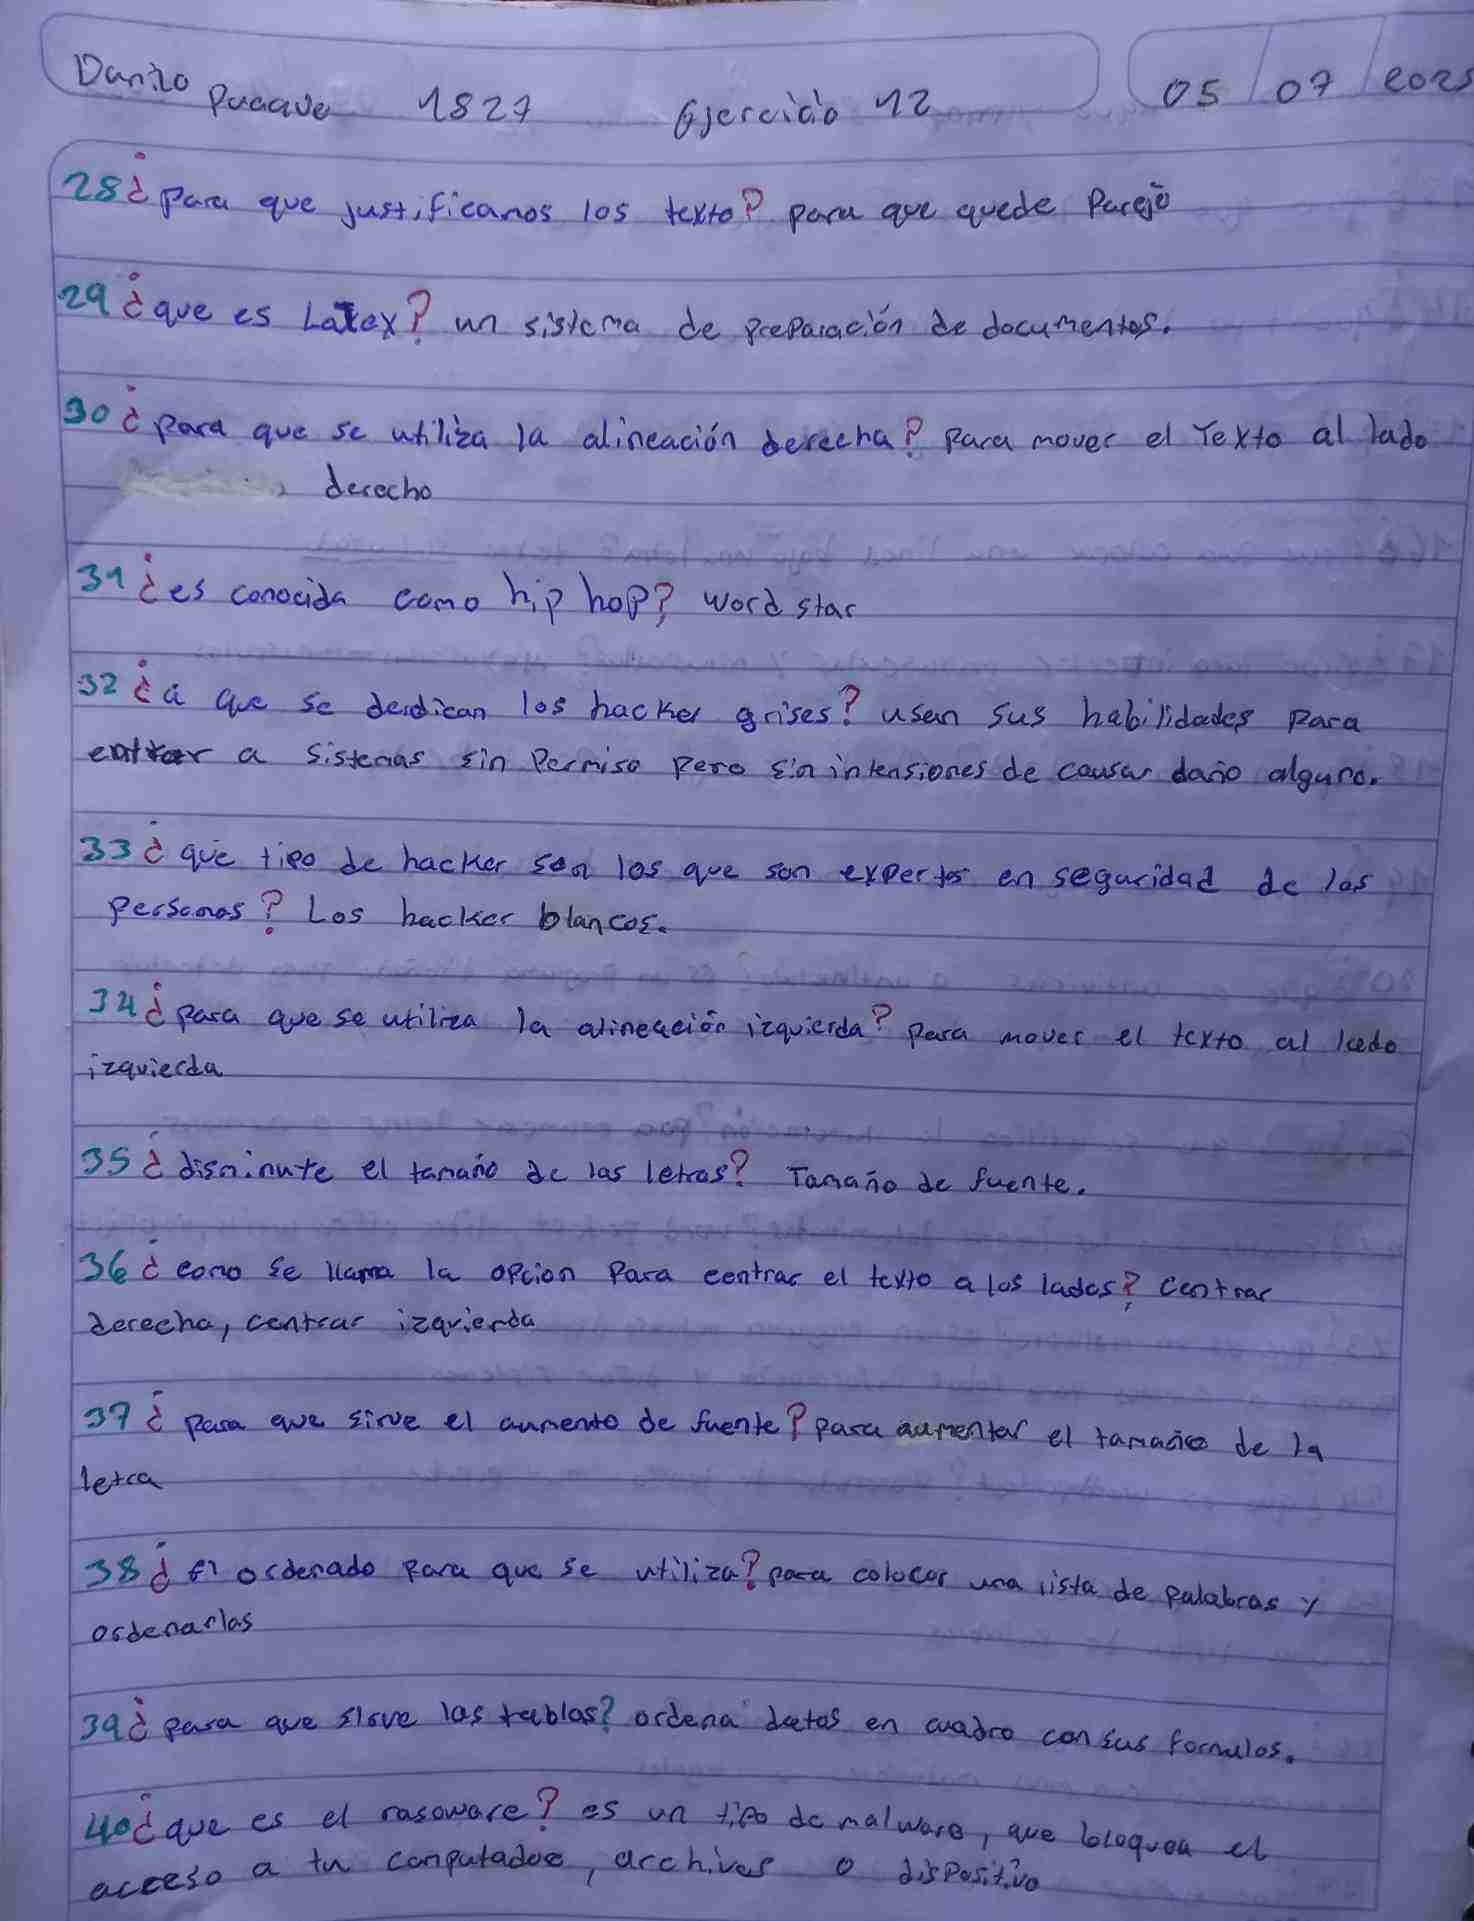 Danilo Pucave 1827 Ejercicio 12 05/07/2025
28¿para que justificamos los texto? para que quede Parejo
29¿que es Latex? un sistema de preparación de documentos.
30¿para que se utiliza la alineación derecha? Para mover el Texto al lado
derecho
31¿es conocida como hip hop? word star
32¿a que se derdican los hacker grises? usan sus habilidades para
entrar a sistemas sin Permiso pero sin intensiones de causar daño alguno.
33¿que tipo de hacker son los que son expertos en seguridad de las
personas? Los hacker blancos.
34¿para que se utiliza la alineación izquierda? para mover el texto al lado
izquierda
35¿disminute el tamaño de las letras? Tamaño de fuente.
36¿como se llama la opcion Para centrar el texto a los lados? centrar
derecha, centrar izquierda
37¿para que sirve el aumento de fuente? para aumentar el tamaño de la
letra
38¿El ordenado Para que se utiliza? para colocar una lista de palabras y
ordenarlas
39¿para que sirve las tablas? ordena datos en cuadro con sus formulas.
40¿que es el rasoware? es un tipo de malware, que bloquea el
acceso a tu computadoe, archivos o dispositivo